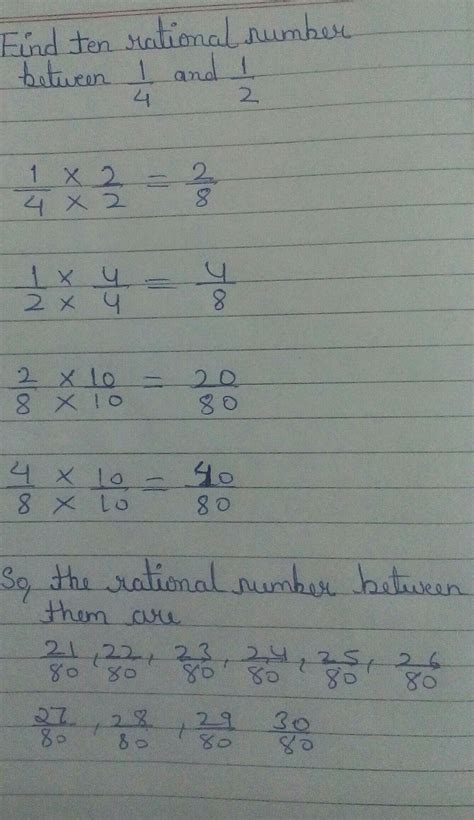 Find ten rational number
between 1/4 and 1/2
1/4 × 2/× 2 = 2/8
1/2 × 4/× 4 = 4/8
2/8 × 10/× 10 = 20/80
4/8 × 10/× 10 = 40/80
So, the rational number between
them are
21/80, 22/80, 23/80, 24/80, 25/80, 26/80
27/80, 28/80, 29/80 30/80